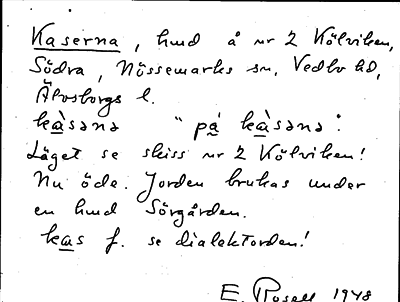 Kaserna, hmd å nr 2 Kölviken,
Södra, Nössemarks sn, Vedbo hd,
Älvsborgs l.
kàsənə "på kàsənə".
Läget se skiss nr 2 Kölviken!
Nu öde. Jorden brukas under
en hmd Sörgården.
kas f. se dialektorden!
E. Rosell 1948